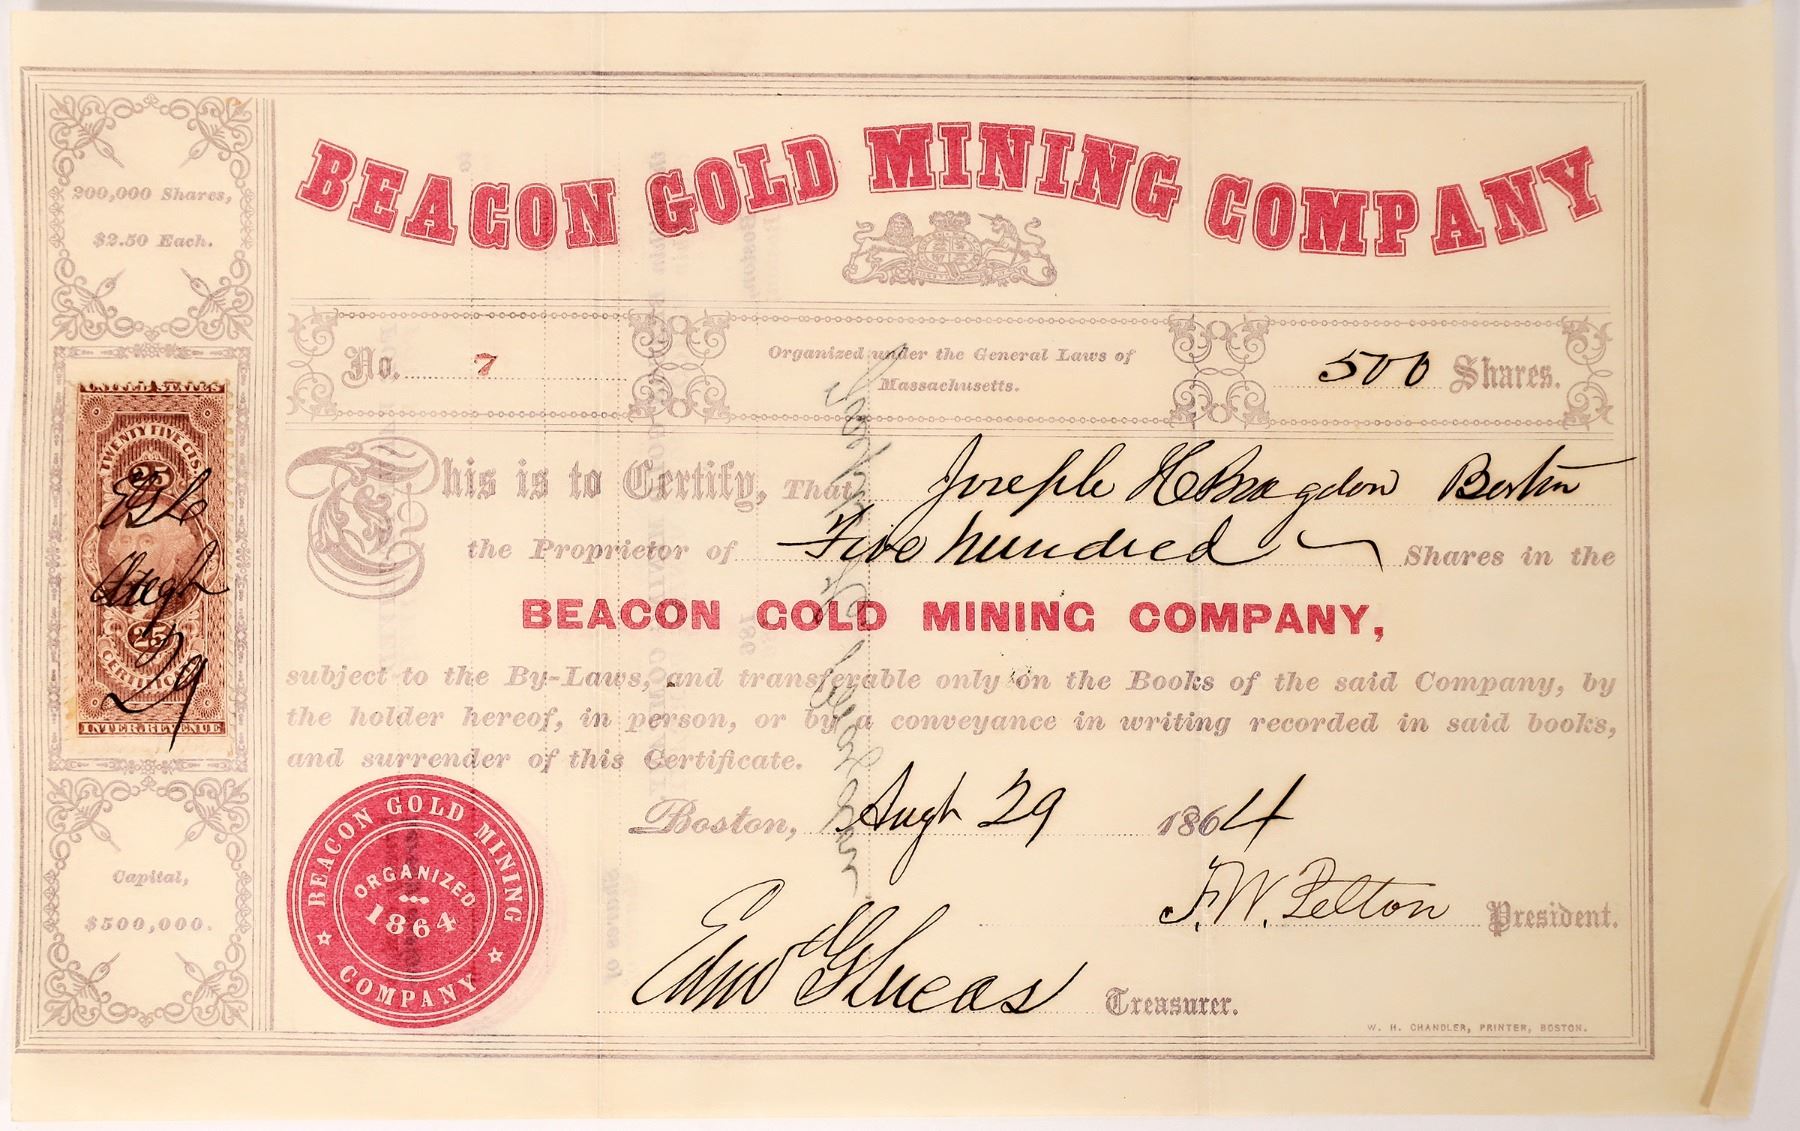 BEACON GOLD MINING COMPANY
200,000 Shares,
$2.50 Each.
No. 7
Organized under the General Laws of
Massachusetts.
500 Shares.
UNITED STATES
TWENTY FIVE CTS.
25
25
CERTIFICATE
INTER. REVENUE
29
This is to Certify, That Joseph H Bragdon Boston
the Proprietor of Five hundred Shares in the
BEACON GOLD MINING COMPANY,
subject to the By-Laws, and transferable only on the Books of the said Company, by
the holder hereof, in person, or by a conveyance in writing recorded in said books,
and surrender of this Certificate.
Boston, Augt 29 1864
Capital,
$500,000.
BEACON GOLD MINING
COMPANY
ORGANIZED
1864
F. W. Pelton President.
Edwd G Lucas Treasurer.
W. H. CHANDLER, PRINTER, BOSTON.